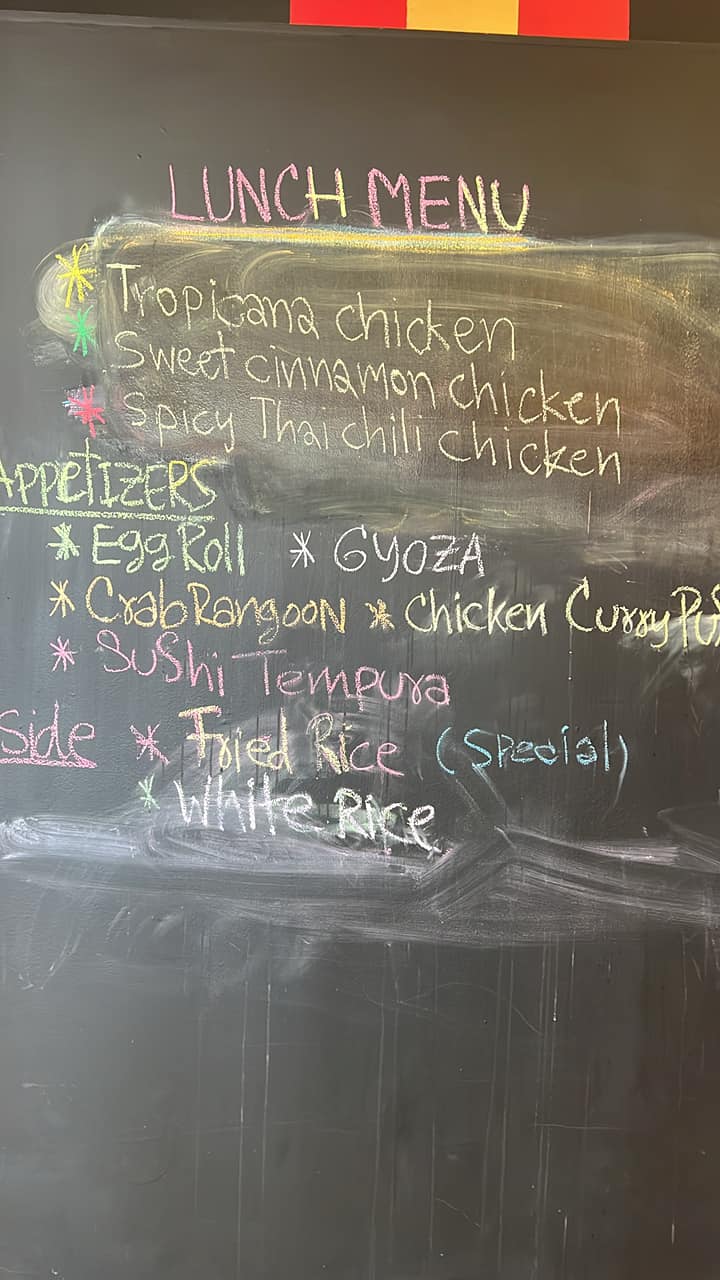 LUNCH MENU
* Tropicana chicken
* Sweet cinnamon chicken
* Spicy Thai chili chicken
APPETIZERS
* Egg Roll * GYOZA
* Crab Rangoon * Chicken Curry Puf
* Sushi Tempura
Side * Fried Rice (Special)
* White Rice